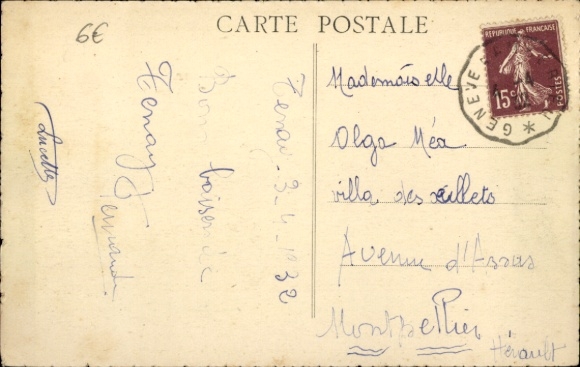 6€
CARTE POSTALE
REPUBLIQUE FRANÇAISE
15c
POSTES
GENEVE
Tenay 3-4-1932
Bon baiser de
Tenay
Fernande
Lucette
Mademoiselle
Olga Méa
villa des œillets
Avenue d'Assas
Montpellier
Hérault